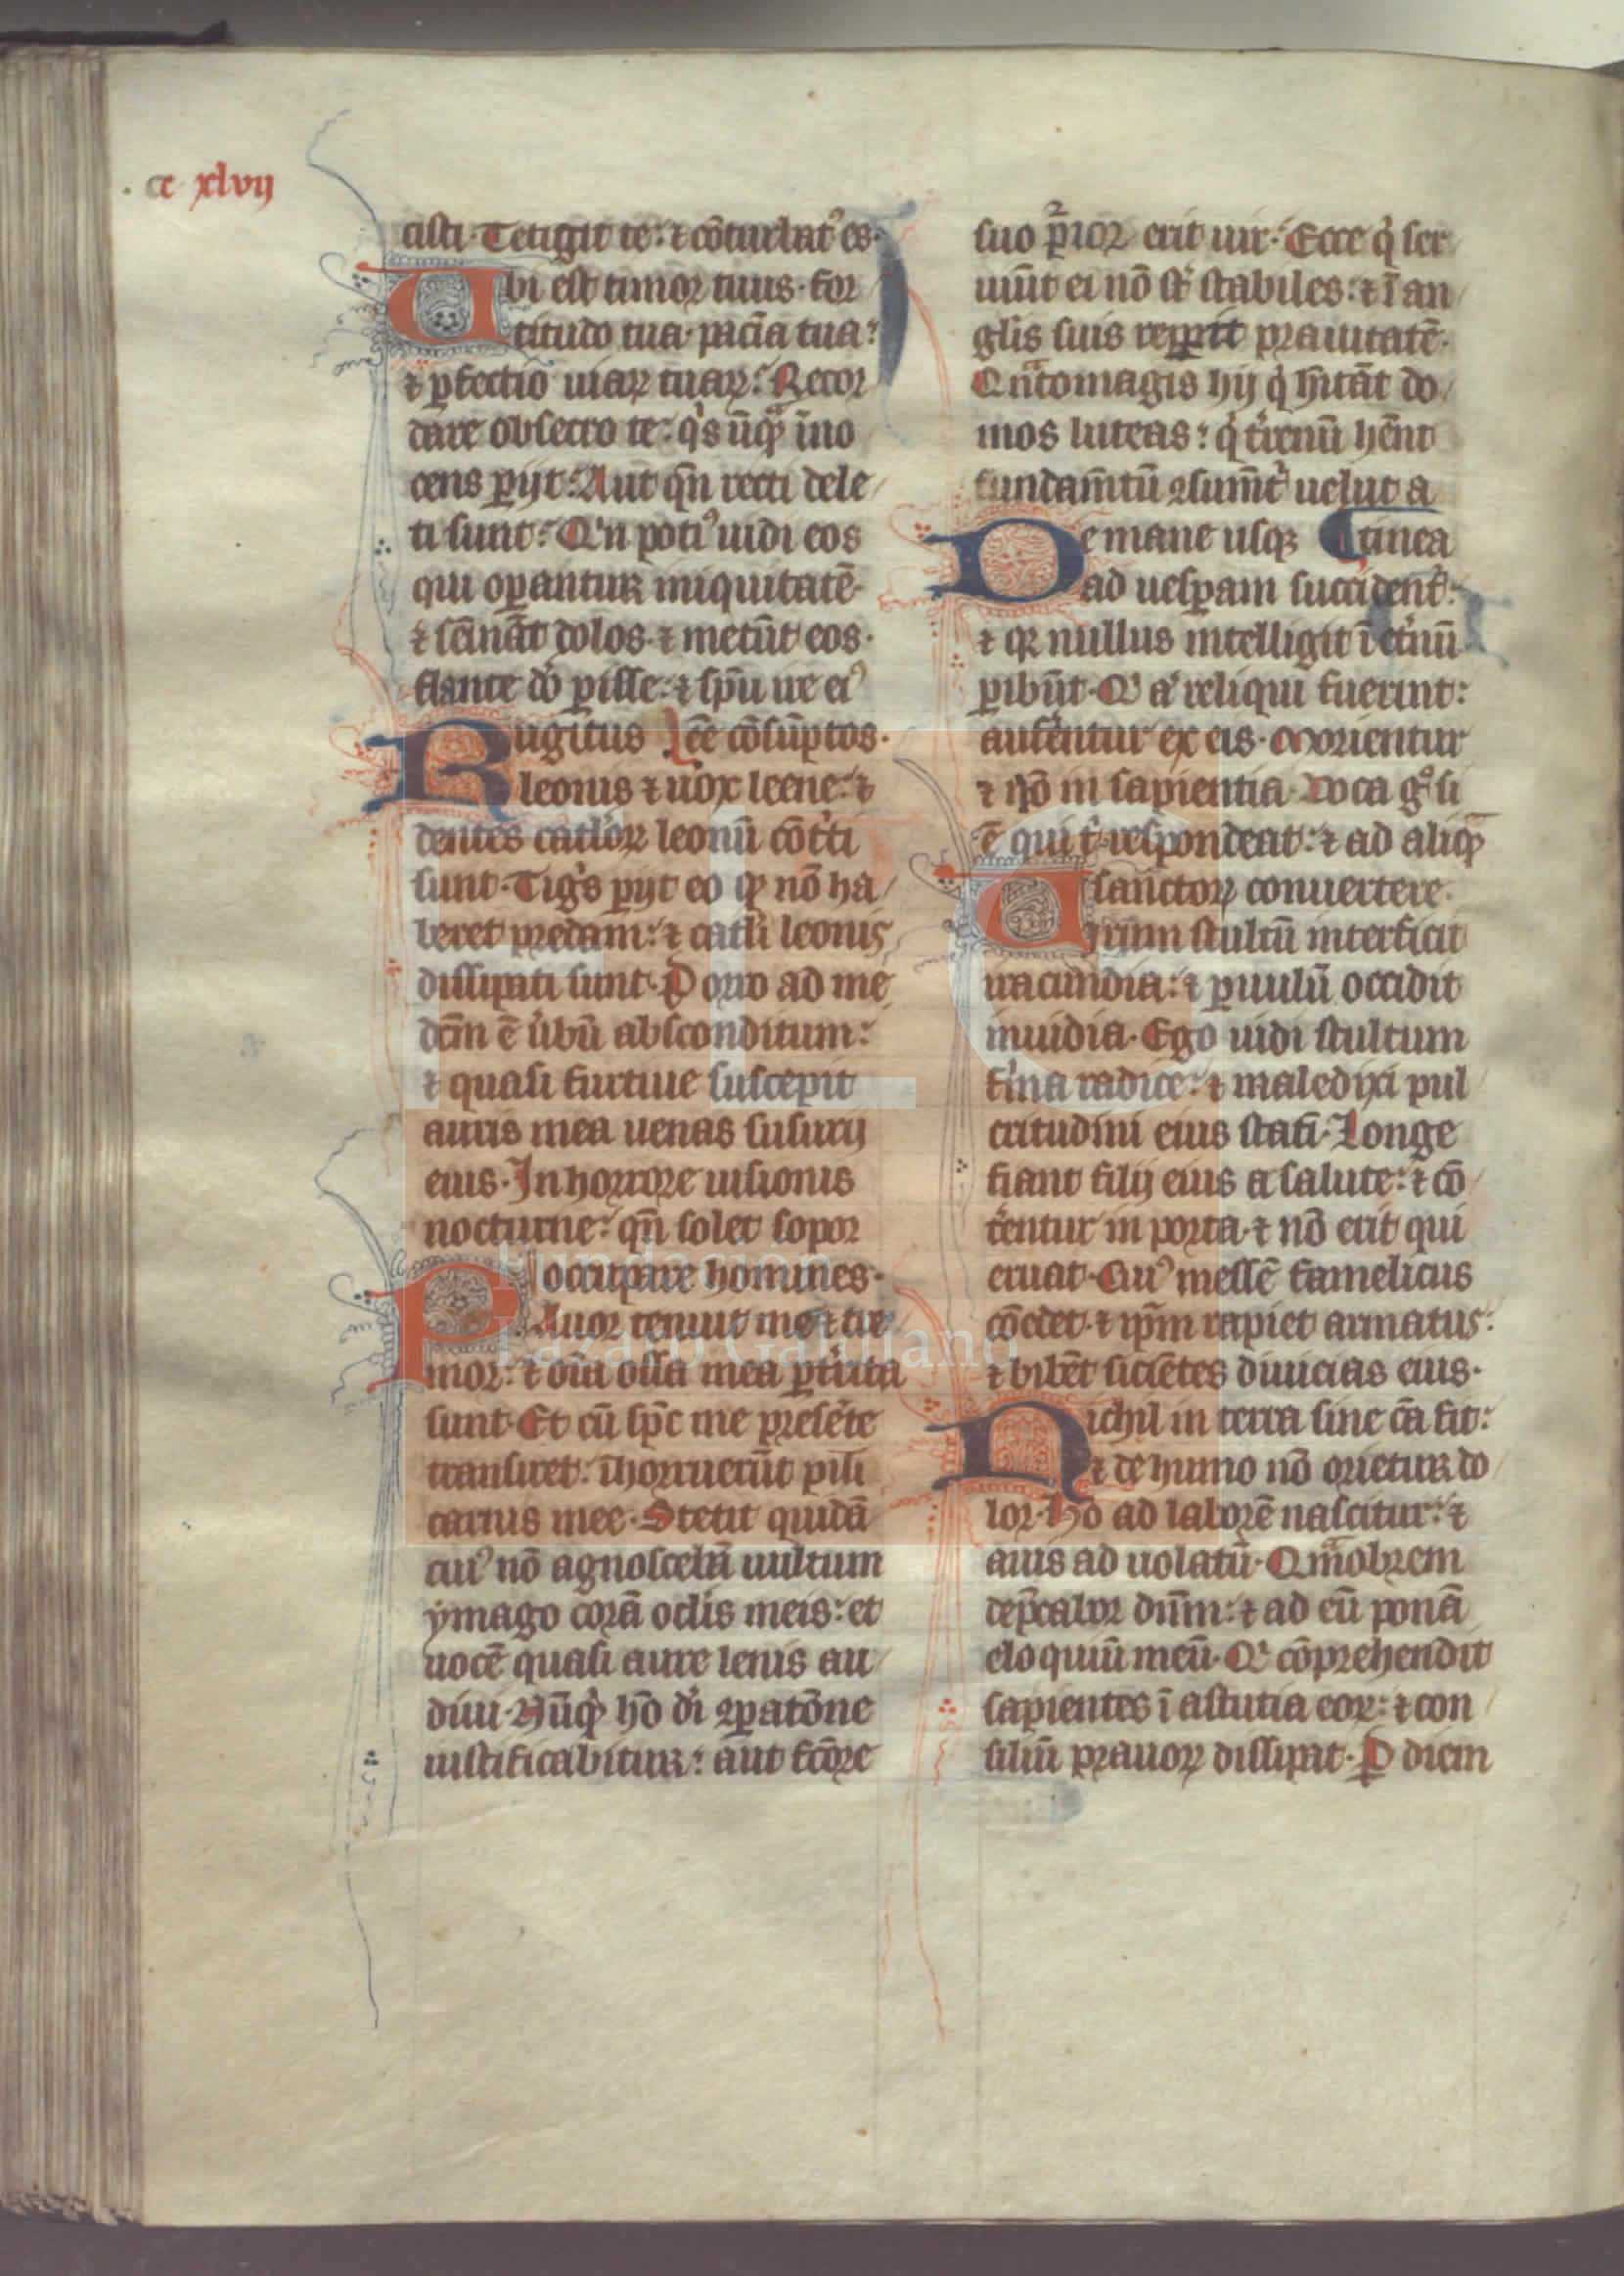 .cc xlvij
cisti. Tetigit te: ⁊ cōturbat᷒ es.
Ubi est timor tuus. for
titudo tua. paciā tua:
⁊ ꝑfectio uiaꝝ tuaꝝ: Recor
dare obsecro te: qͥs ūqͣꝫ īno
cens ꝑijt: Aut qn̄ recti dele
ti sunt: Qͥn poti᷒ uidi eos
qui oꝑantur iniquitatē.
⁊ sēināt dolos. ⁊ metūt eos.
flante dō ꝑisse: ⁊ spū ire ei᷒
Rugitus ēe cōsūptos.
leonis ⁊ uox leene: ⁊
dentes catloꝝ leonū cōtͥti
sunt. Tigͥs ꝑijt eo ꝙ nō ha
beret predam: ⁊ catli leonis
dissipati sunt. Porro ad me
dc̄m ē ūbū absconditum:
⁊ quasi furtiue suscepit
auris mea uenas susurij
eius. In horrore uisionis
nocturne: qn̄ solet sopor
occupare homines.
Pauor tenuit me ⁊ tre
mor: ⁊ oīa ossa mea ꝑtͥrita
sunt. Et cū spc̄ me presēte
transiret: īhorruerūt pili
carnis mee. Stetit quidā
cui᷒ nō agnoscebā uultum
ymago corā oclis meis: et
uocē quasi aure lenis au
diui. Nūqͥd hō dͥi ꝯꝑatōne
iustificabitur: aut fcōre
suo pͥꝰior erit uir: Ecce qͥ ser
uiūt ei nō st̄ stabiles: ⁊ ī an
glis suis repperit prauitatē.
Qntͦmagis hij qͥ hītāt do
mos luteas: qͥ tͤrenū hn̄t
fundam̄tū ꝯsum̄tͬ uelut a
De mane usqꝫ tinea
ad uesꝑam succident̄:
⁊ qꝛ nullus intelligit ī etͤnū
ꝑibūt. Qͥ aͭ reliqui fuerint:
aufērentur ex eis. Morientur
⁊ nō in sapientia. Uoca gͦ si
ē qui tͥ respondeat: ⁊ ad aliqͣꝫ
sanctoꝝ conuertere.
Uirum stultū interficit
iracundia: ⁊ ꝑuulū occidit
inuidia. Ego uidi stultum
fͥma radice: ⁊ maledixi pul
critudini eius stati. Longe
fiant filij eius a salute: ⁊ cō
tͤrentur in porta. ⁊ nō erit qui
eruat. Cui᷒ messē famelicus
cōedet. ⁊ ip̄m rapiet armatus:
⁊ bibēt sicietes diuicias eius.
Nichil in terra sine cā fit:
⁊ de humo nō orietur do
lor. Hō ad laborē nascitur: ⁊
auis ad uolatū. Qͣmobrem
dep̄cabor dn̄m: ⁊ ad eū ponā
eloquiū meū. Qͥ cōprehendit
sapientes ī astutia eoꝝ: ⁊ con
siliū prauoꝝ dissipat. Ꝑ diem
FLG
Fundación
Lázaro Galdiano